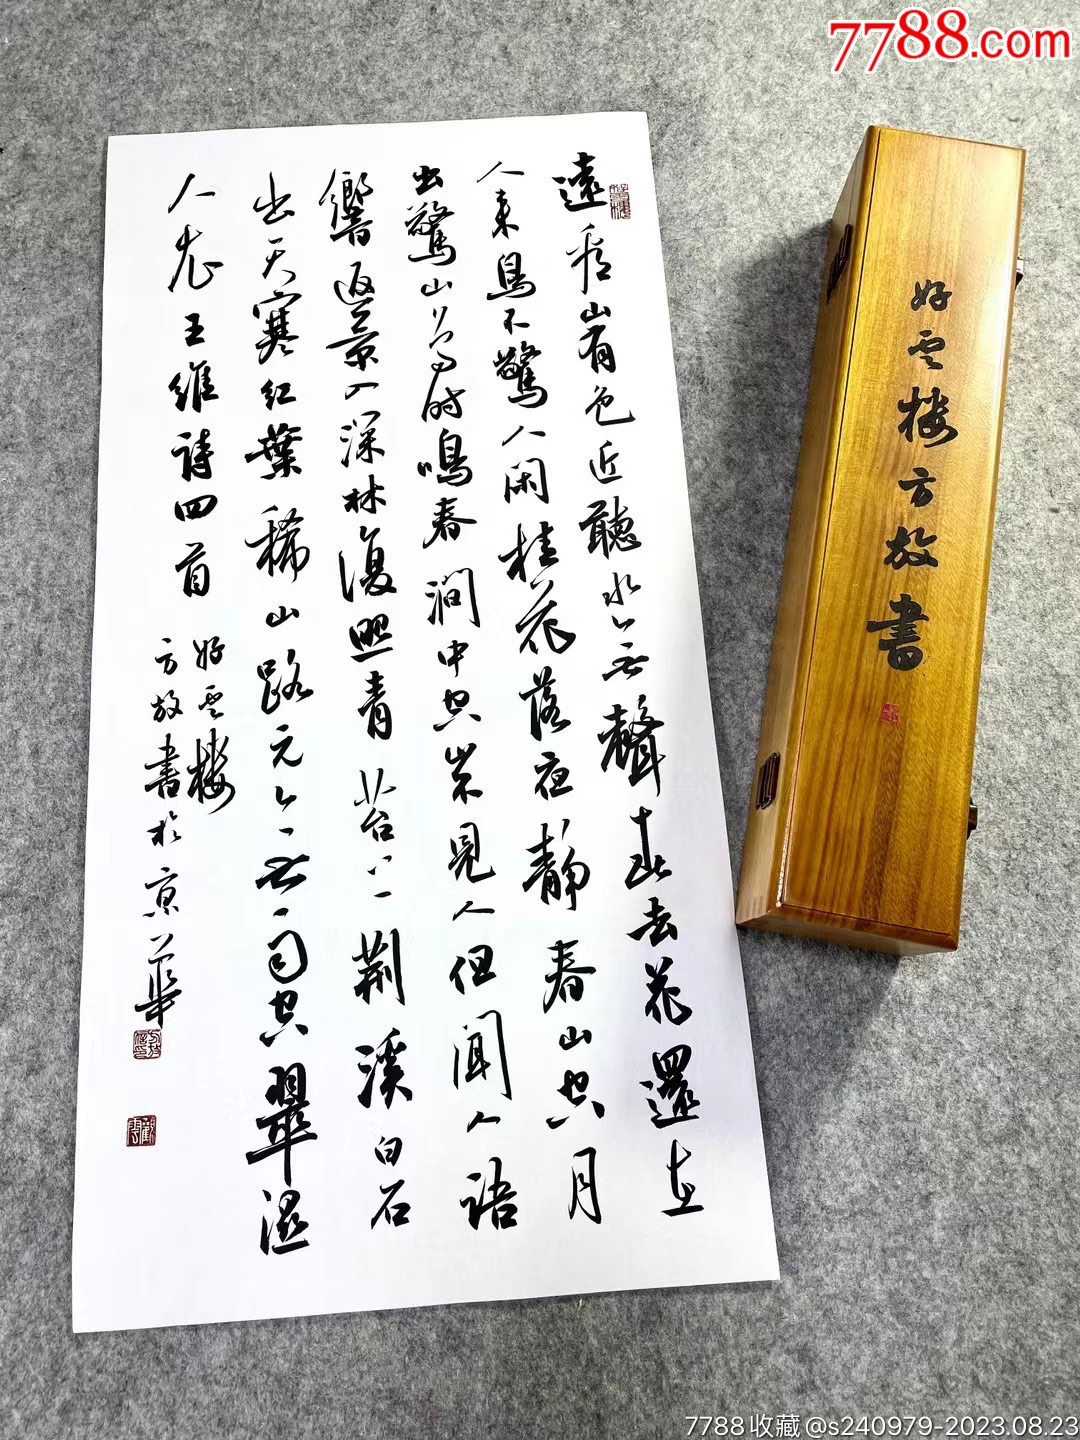 7788.com
遠看山有色近聽水無聲春去花還在
人來鳥不驚人閑桂花落夜靜春山空月
出驚山鳥时鳴春澗中空山不見人但聞人語
響返景入深林復照青苔上荊溪白石
出天寒紅葉稀山路元無雨空翠濕
人衣王維詩四首
好雲樓
方放書於京華
好雲樓方放書
7788收藏@s240979-2023.08.23